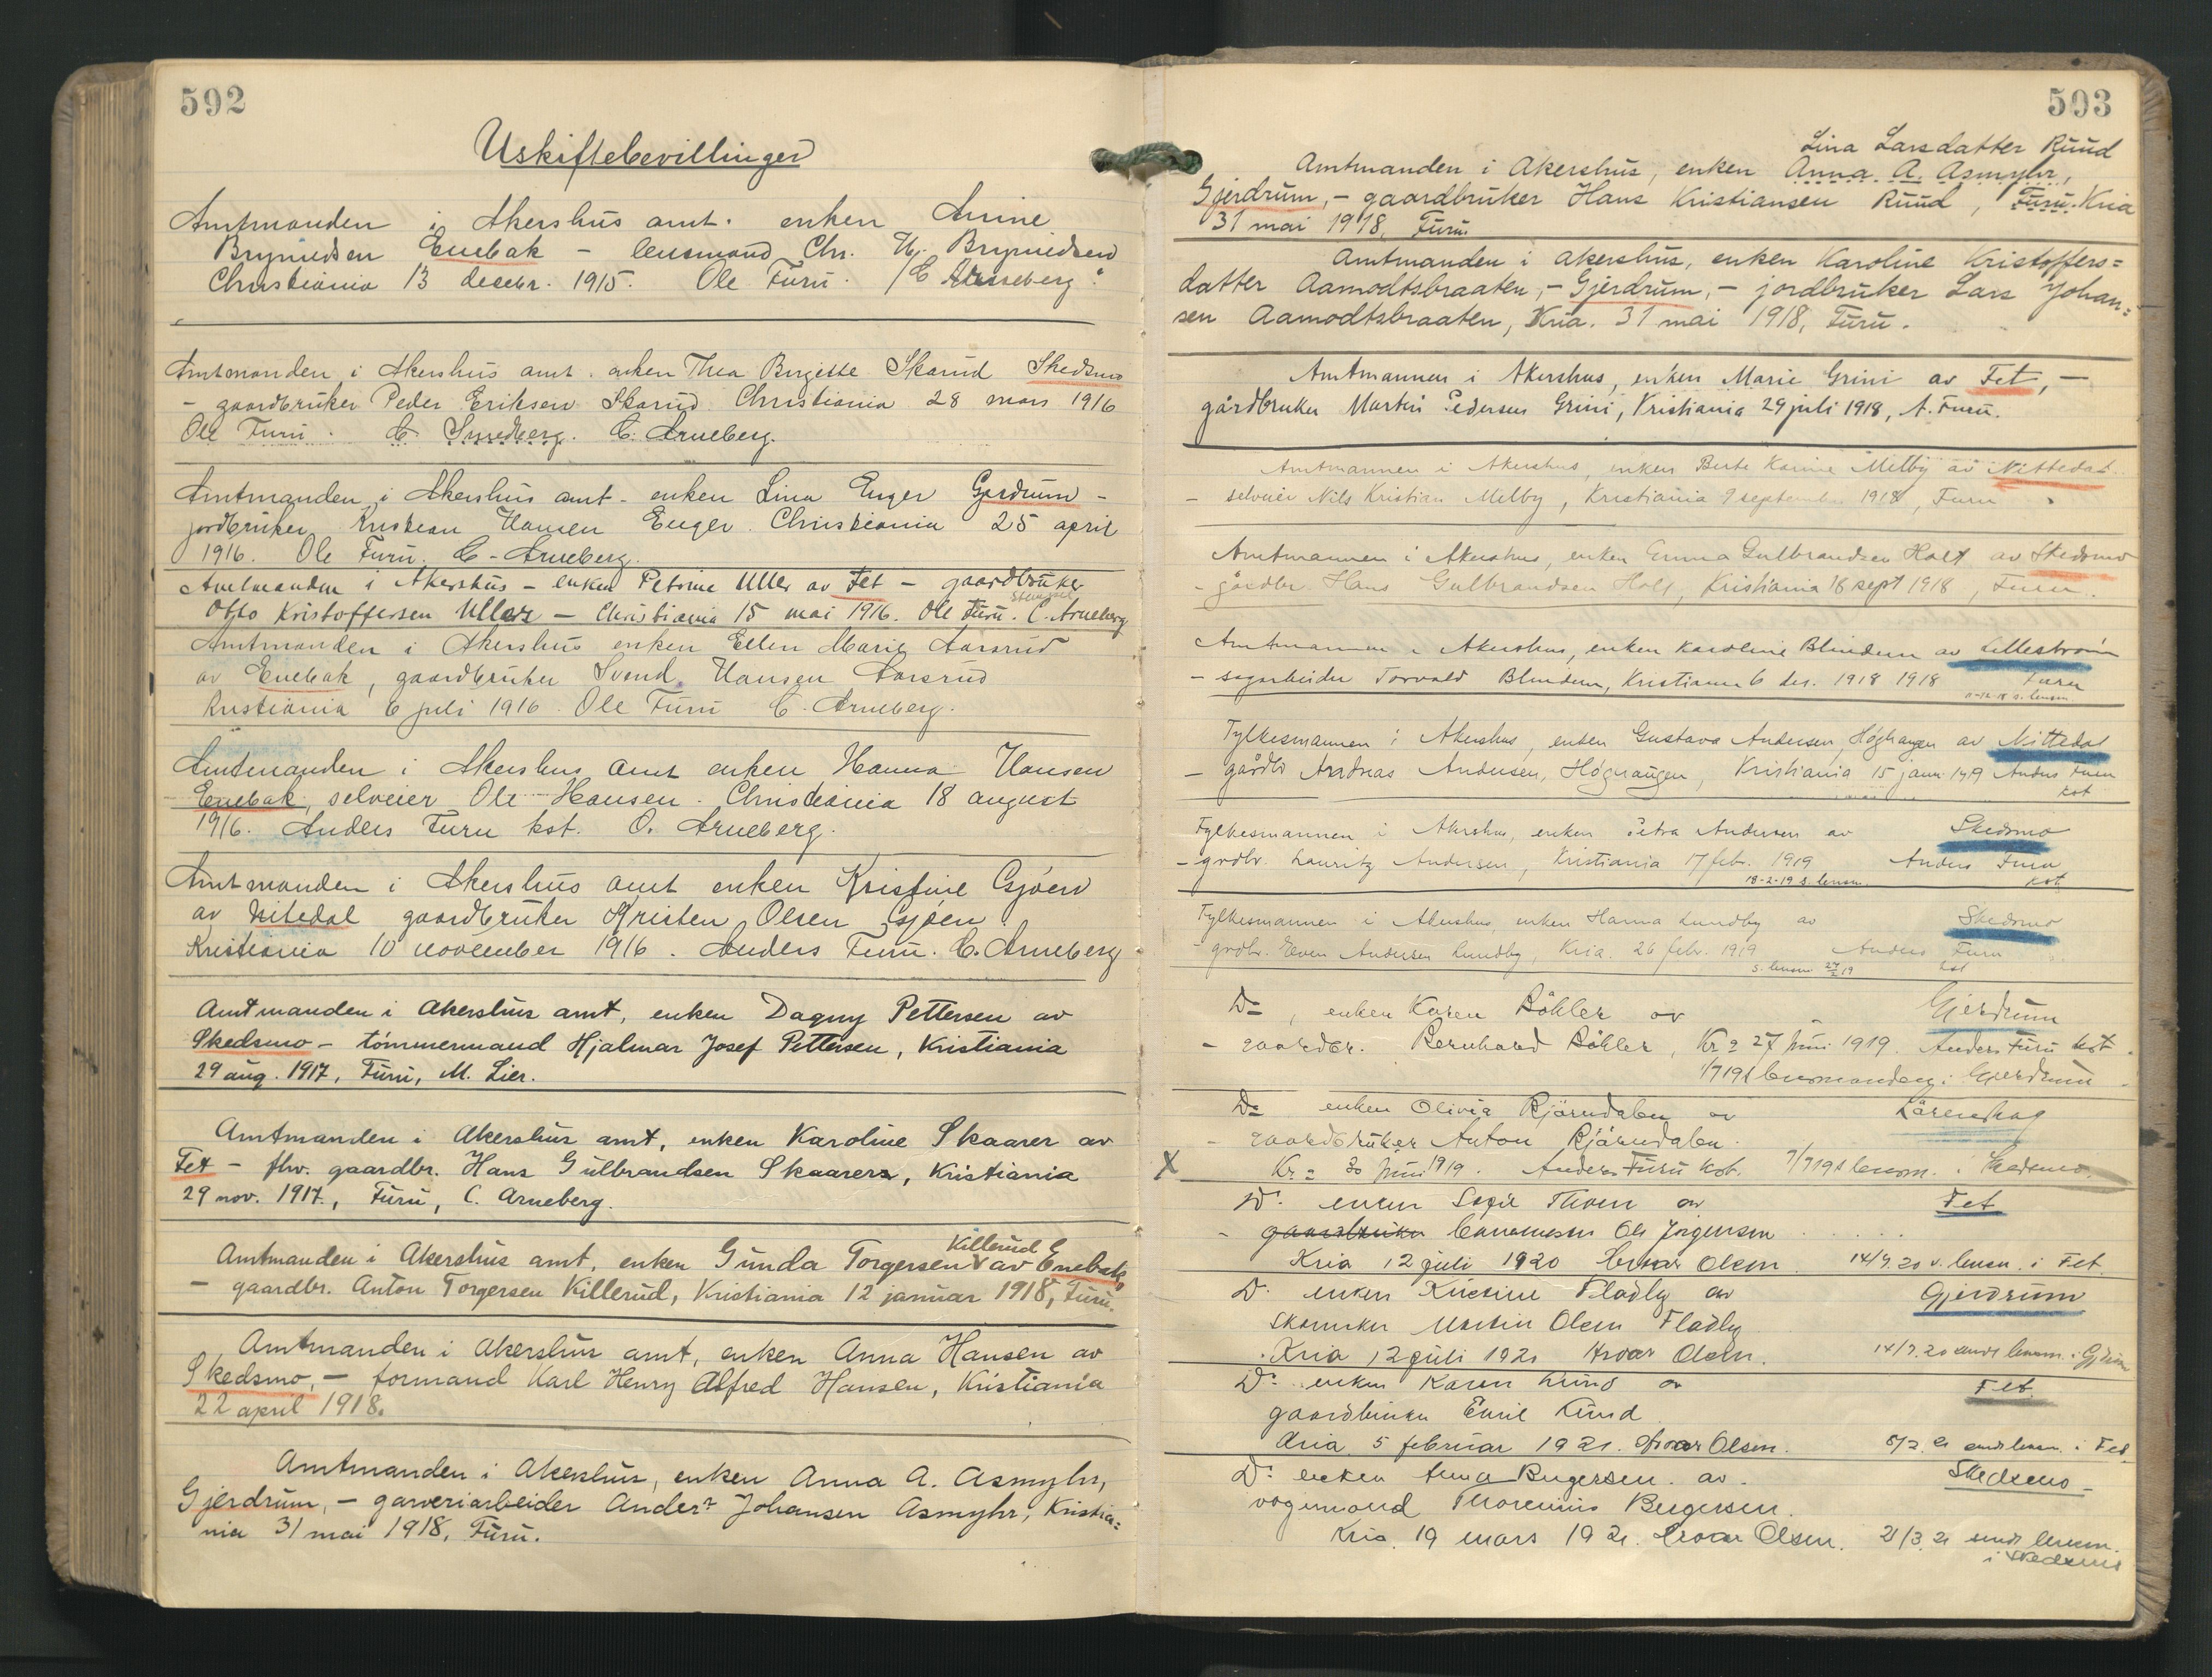 592
Uskiftebevillinger
Amtmanden i Akershus amt. enken Anine
Brynildsen Enebak - lensmand Chr. H. Brynildsen
Christiania 13 decbr. 1915. Ole Furu. /C Arneberg.
Amtmanden i Akershus amt. enken Thea Birgitte Skarud Skedsmo
- gaardbruker Peder Eriksen Skarud. Christiania 28 mars 1916
Ole Furu. C. C. Arneberg.
Amtmanden i Akershus amt - enken Lina Enger Gjerdrum -
jordbruker Kristian Hansen Enger. Christiania 25 april
1916. Ole Furu. C. Arneberg.
Amtmanden i Akershus - enken Petrine Uller av Fet - gaardbruker
Otto Kristoffersen Uller - Christiania 15 mai 1916. Ole Furu. C. Arneberg
Amtmanden i Akershus enken Ellen Marie Aarsrud
av Enebak, gaardbruker Svend Hansen Aarsrud
Kristiania 6 juli 1916. Ole Furu C. Arneberg.
Amtmanden i Akershus amt enken Hanna Hansen
Enebak, selveier Ole Hansen. Christiania 18 august
1916. Anders Furu kst. O. Arneberg.
Amtmanden i Akershus amt enken Kristine Gjøen
av Nitedal gaardbruker Kristen Olsen Gjøen
Kristiania 10 november 1916. Anders Furu. C. Arneberg
Amtmanden i Akershus amt, enken Dagny Pettersen av
Skedsmo - tømmermand Hjalmar Josef Pettersen, Kristiania
29 aug. 1917, Furu, M. Lier.
Amtmanden i Akershus amt, enken Karoline Skaarer av
Fet - fhv. gaardbr. Hans Gulbrandsen Skaarer, Kristiania
29 nov. 1917, Furu, C. Arneberg.
Killerud
Amtmanden i Akershus amt, enken Gunda Torgersen av Enebak,
- gaardbr. Anton Torgersen Killerud, Kristiania 12 januar 1918, Furu.
Amtmanden i Akershus amt, enken Anna Hansen av
Skedsmo, - formand Karl Henry Alfred Hansen, Kristiania
22 april 1918.
Amtmanden i Akershus, enken Anna A. Asmyhr,
Gjerdrum, - garveriarbeider Anders Johansen Asmyhr, Kristia=
nia 31 mai 1918, Furu.
593
Lina Larsdatter Ruud
Amtmanden i Akershus, enken Anna A. Asmyhr,
Gjerdrum, - gaardbruker Hans Kristiansen Ruud, Furu. Kria
31 mai 1918, Furu
Amtmanden i Akershus, enken Karoline Kristoffers=
datter Aamodtsbraaten, - Gjerdrum, - jordbruker Lars Johan=
sen Aamodtsbraaten, Kria. 31 mai 1918, Furu.
Amtmannen i Akershus, enken Marie Grini av Fet, -
gårdbruker Martin Pedersen Grini, Kristiania 29 juli 1918, A. Furu.
Amtmannen i Akershus, enken Berte Karine Melby av Nittedal
- selveier Nils Kristian Melby, Kristiania 9 september 1918, Furu
Amtmannen i Akershus, enken Emma Gulbrandsen Holt av Skedsmo
- gårdbr Hans Gulbrandsen Holt, Kristiania 18 sept 1918, Furu.
Amtmannen i Akershus, enken Karoline Blindern av Lillestrøm
- sagarbeider Torvald Blindern, Kristiania 6 des. 1918 1918 Furu
Fylkesmannen i Akershus, enken Gustava Andersen, Høghaugen av Nittedal
- gårdbr Andreas Andersen, Høghaugen, Kristiania 15 jan. 1919 Anders Furu
kst
Fylkesmannen i Akershus, enken Petra Andersen av Skedsmo
- grdbr. Lauritz Andersen, Kristiania 17 feb. 1919 Anders Furu
18-2-19 s. lensm. kst
Fylkesmannen i Akershus, enken Hanna Lundby av Skedsmo
- grdbr. Even Andersen Lundby, Kria. 26 febr. 1919 Anders Furu
s. lensm 27/2 19 kst
Do, enken Karen Bøhler av Gjerdrum
- gaardbr. Bernhard Bøhler, Kra 27 juni 1919. Anders Furu kst.
1/7 19 t lensmanden i Gjerdrum
Do enken Olivia Bjørndalen av Lørenskog
- gaardbruker Anton Bjørndalen.
X Kra 30 juni 1919. Anders Furu kst. 7/7 19 t lensm. i Skedsmo.
Do enken Sofie Thoen av Fet
- gaardbruker Ole Jørgensen
Kria 12 juli 1920 Hroar Olsen. 14/7. 20 s. lensm. i Fet.
Do enken Kirstine Fladby av Gjerdrum
skomaker Martin Olsen Fladby
Kria 12 juli 1920 Hroar Olsen. 14/7. 20 sendt lensm. i Gjerdrum
Do enken Karen Lund av Fet.
gaardbruker Emil Lund
Kria 5 februar 1921. Hroar Olsen. 8/2. 21 sendt lensm. i Fet.
Do enken Anna Birgersen. av. Skedsmo -
vognmand Thorenius Birgersen.
Kria. 19 mars 1921. Hroar Olsen. 21/3. 21 sendt lensm.
i Skedsmo